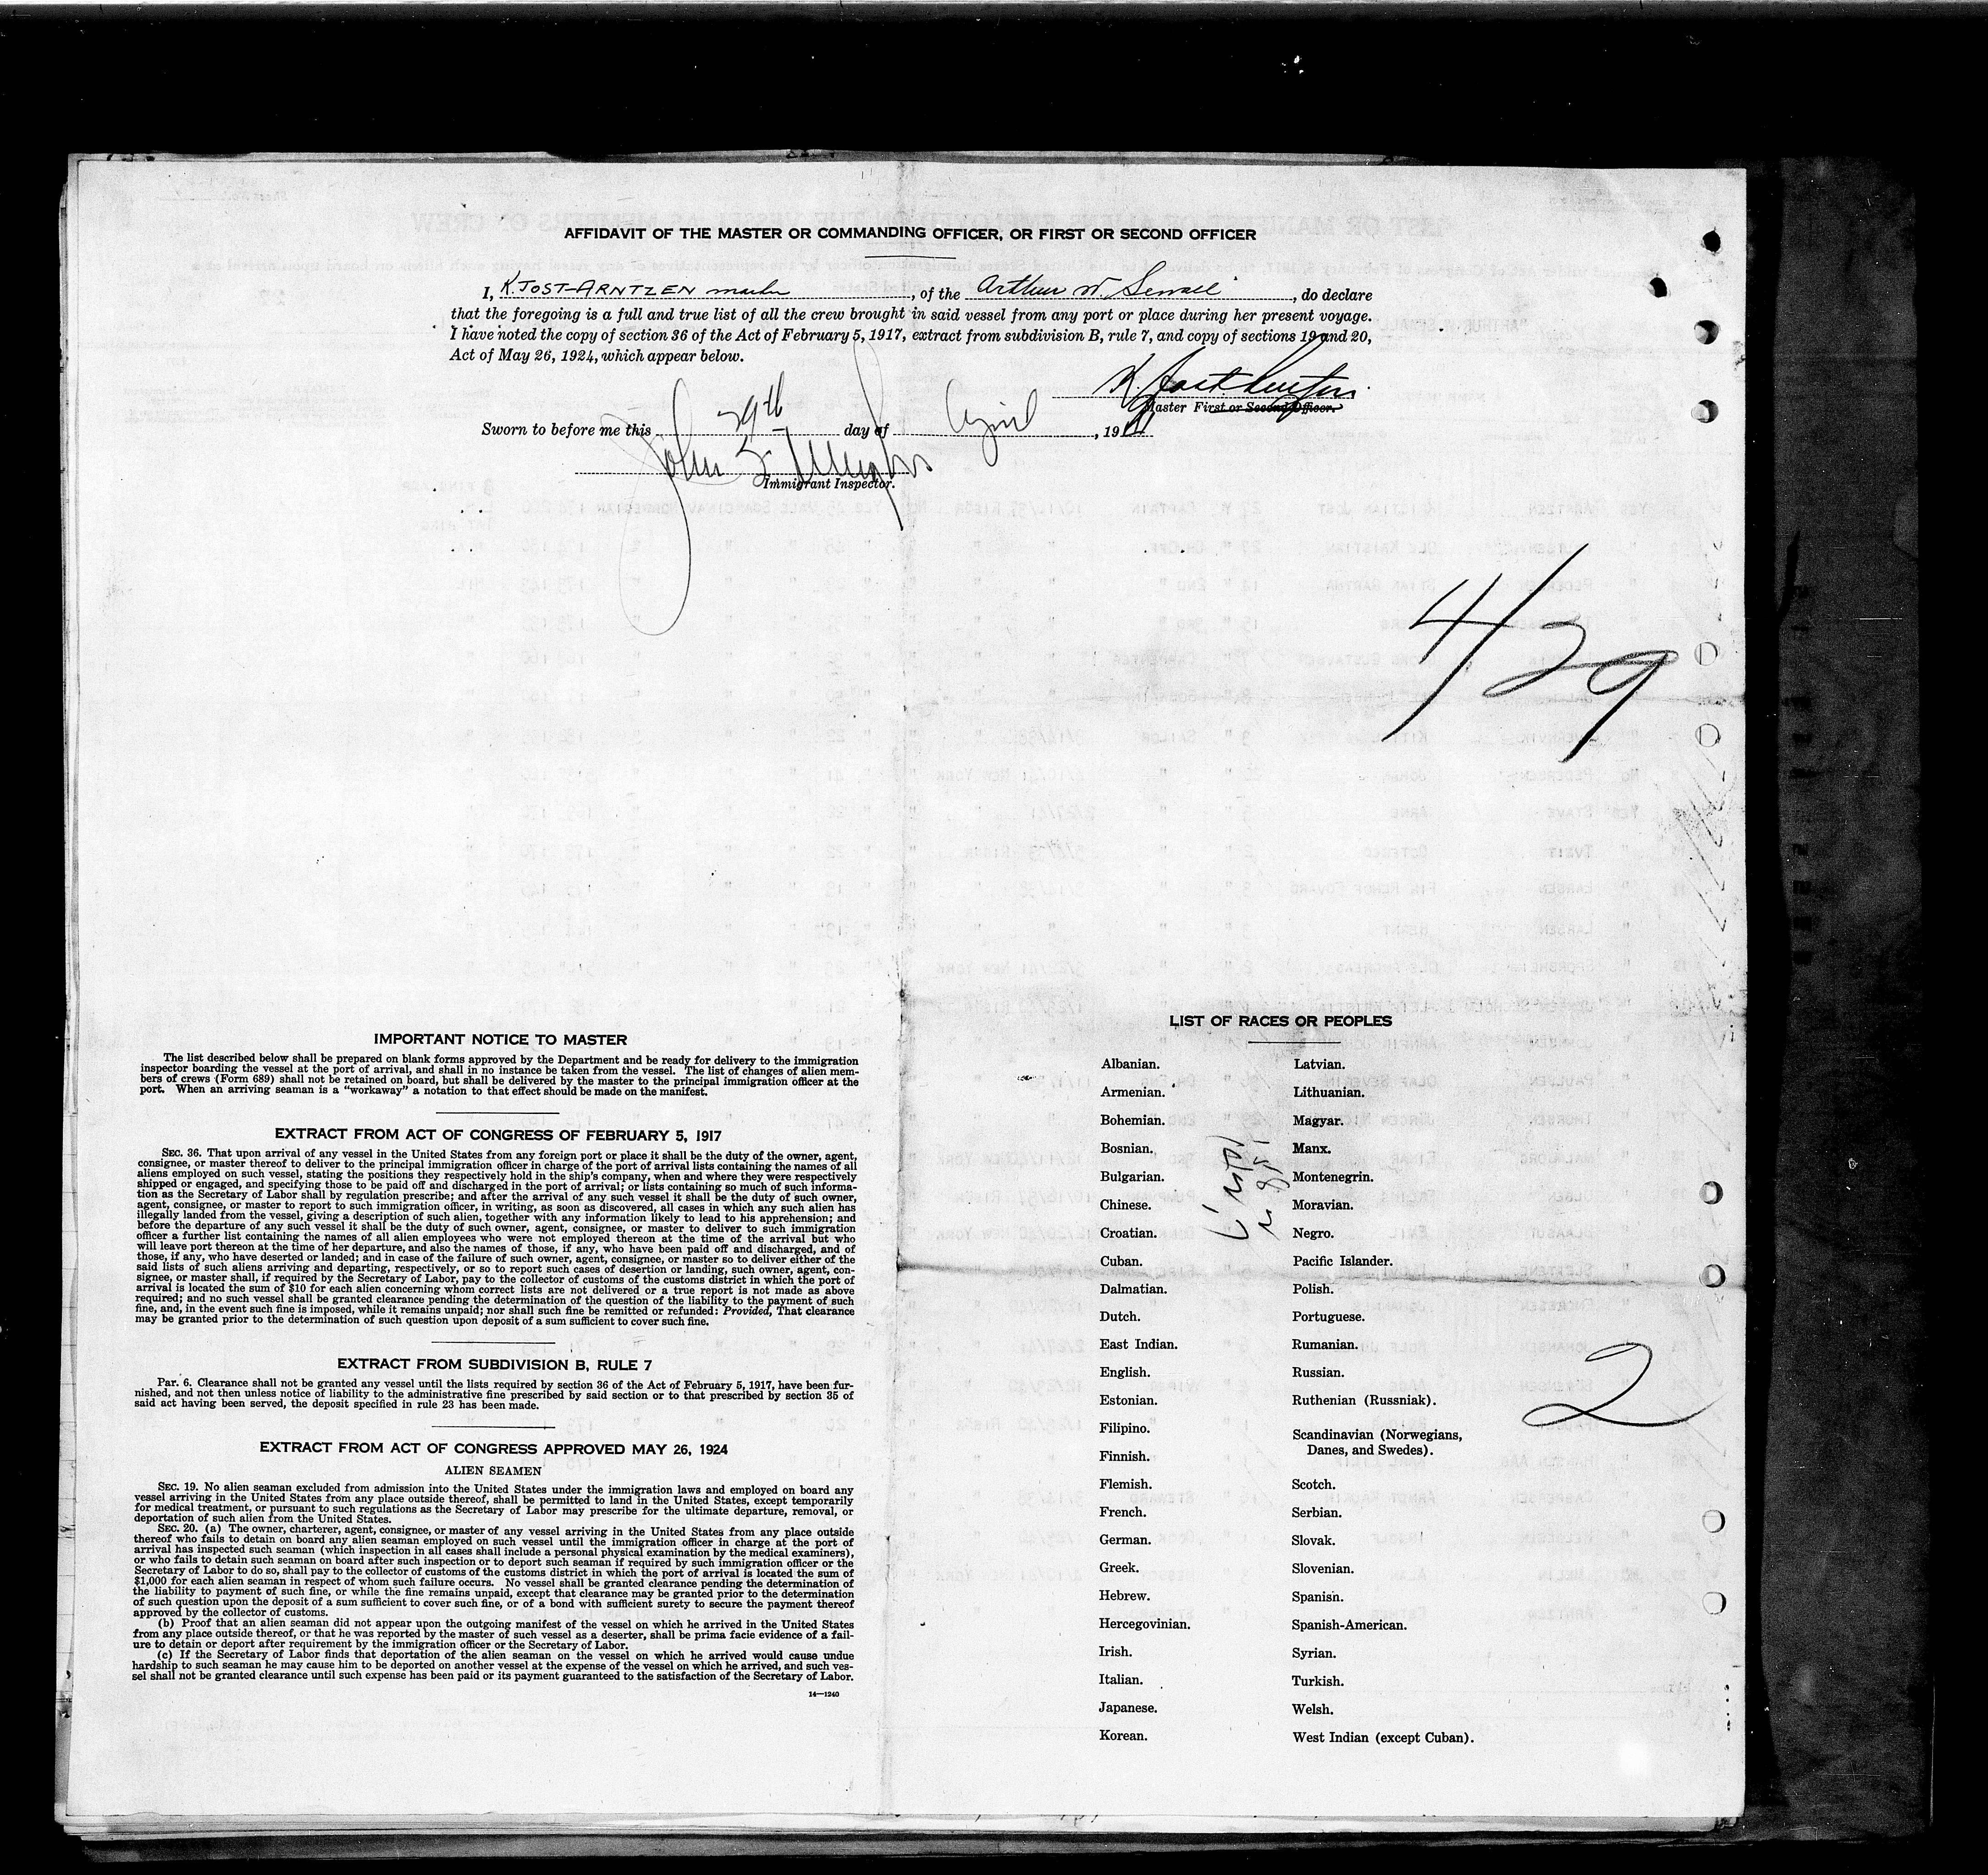 AFFIDAVIT OF THE MASTER OR COMMANDING OFFICER, OR FIRST OR SECOND OFFICER
I, K. JOST-ARNTZEN master, of the Arthur W. Sewall, do declare
that the foregoing is a full and true list of all the crew brought in said vessel from any port or place during her present voyage.
I have noted the copy of section 36 of the Act of February 5, 1917, extract from subdivision B, rule 7, and copy of sections 19 and 20,
Act of May 26, 1924, which appear below.
Master First or Second Officer.
Sworn to before me this 29th day of April, 1941
John
Immigrant Inspector.
429
IMPORTANT NOTICE TO MASTER
The list described below shall be prepared on blank forms approved by the Department and be ready for delivery to the immigration
inspector boarding the vessel at the port of arrival, and shall in no instance be taken from the vessel. The list of changes of alien mem-
bers of crews (Form 689) shall not be retained on board, but shall be delivered by the master to the principal immigration officer at the
port. When an arriving seaman is a "workaway" a notation to that effect should be made on the manifest.
EXTRACT FROM ACT OF CONGRESS OF FEBRUARY 5, 1917
SEC. 36. That upon arrival of any vessel in the United States from any foreign port or place it shall be the duty of the owner, agent,
consignee, or master thereof to deliver to the principal immigration officer in charge of the port of arrival lists containing the names of all
aliens employed on such vessel, stating the positions they respectively hold in the ship's company, when and where they were respectively
shipped or engaged, and specifying those to be paid off and discharged in the port of arrival; or lists containing so much of such informa-
tion as the Secretary of Labor shall by regulation prescribe; and after the arrival of any such vessel it shall be the duty of such owner,
agent, consignee, or master to report to such immigration officer, in writing, as soon as discovered, all cases in which any such alien has
illegally landed from the vessel, giving a description of such alien, together with any information likely to lead to his apprehension; and
before the departure of any such vessel it shall be the duty of such owner, agent, consignee, or master to deliver to such immigration
officer a further list containing the names of all alien employees who were not employed thereon at the time of the arrival but who
will leave port thereon at the time of her departure, and also the names of those, if any, who have been paid off and discharged, and of
those, if any, who have deserted or landed; and in case of the failure of such owner, agent, consignee, or master so to deliver either of the
said lists of such aliens arriving and departing, respectively, or so to report such cases of desertion or landing, such owner, agent, con-
signee, or master shall, if required by the Secretary of Labor, pay to the collector of customs of the customs district in which the port of
arrival is located the sum of $10 for each alien concerning whom correct lists are not delivered or a true report is not made as above
required; and no such vessel shall be granted clearance pending the determination of the question of the liability to the payment of such
fine, and, in the event such fine is imposed, while it remains unpaid; nor shall such fine be remitted or refunded: Provided, That clearance
may be granted prior to the determination of such question upon deposit of a sum sufficient to cover such fine.
EXTRACT FROM SUBDIVISION B, RULE 7
Par. 6. Clearance shall not be granted any vessel until the lists required by section 36 of the Act of February 5, 1917, have been fur-
nished, and not then unless notice of liability to the administrative fine prescribed by said section or to that prescribed by section 35 of
said act having been served, the deposit specified in rule 23 has been made.
EXTRACT FROM ACT OF CONGRESS APPROVED MAY 26, 1924
ALIEN SEAMEN
SEC. 19. No alien seaman excluded from admission into the United States under the immigration laws and employed on board any
vessel arriving in the United States from any place outside thereof, shall be permitted to land in the United States, except temporarily
for medical treatment, or pursuant to such regulations as the Secretary of Labor may prescribe for the ultimate departure, removal, or
deportation of such alien from the United States.
SEC. 20. (a) The owner, charterer, agent, consignee, or master of any vessel arriving in the United States from any place outside
thereof who fails to detain on board any alien seaman employed on such vessel until the immigration officer in charge at the port of
arrival has inspected such seaman (which inspection in all cases shall include a personal physical examination by the medical examiners),
or who fails to detain such seaman on board after such inspection or to deport such seaman if required by such immigration officer or the
Secretary of Labor to do so, shall pay to the collector of customs of the customs district in which the port of arrival is located the sum of
$1,000 for each alien seaman in respect of whom such failure occurs. No vessel shall be granted clearance pending the determination of
the liability to payment of such fine, or while the fine remains unpaid, except that clearance may be granted prior to the determination
of such question upon the deposit of a sum sufficient to cover such fine, or of a bond with sufficient surety to secure the payment thereof
approved by the collector of customs.
(b) Proof that an alien seaman did not appear upon the outgoing manifest of the vessel on which he arrived in the United States
from any place outside thereof, or that he was reported by the master of such vessel as a deserter, shall be prima facie evidence of a fail-
ure to detain or deport after requirement by the immigration officer or the Secretary of Labor.
(c) If the Secretary of Labor finds that deportation of the alien seaman on the vessel on which he arrived would cause undue
hardship to such seaman he may cause him to be deported on another vessel at the expense of the vessel on which he arrived, and such ves-
sel shall not be granted clearance until such expense has been paid or its payment guaranteed to the satisfaction of the Secretary of Labor.
14—1240
LIST OF RACES OR PEOPLES
Albanian.
Armenian.
Bohemian.
Bosnian.
Bulgarian.
Chinese.
Croatian.
Cuban.
Dalmatian.
Dutch.
East Indian.
English.
Estonian.
Filipino.
Finnish.
Flemish.
French.
German.
Greek.
Hebrew.
Hercegovinian.
Irish.
Italian.
Japanese.
Korean.
Latvian.
Lithuanian.
Magyar.
Manx.
Montenegrin.
Moravian.
Negro.
Pacific Islander.
Polish.
Portuguese.
Rumanian.
Russian.
Ruthenian (Russniak).
Scandinavian (Norwegians,
Danes, and Swedes).
Scotch.
Serbian.
Slovak.
Slovenian.
Spanish.
Spanish-American.
Syrian.
Turkish.
Welsh.
West Indian (except Cuban).
2